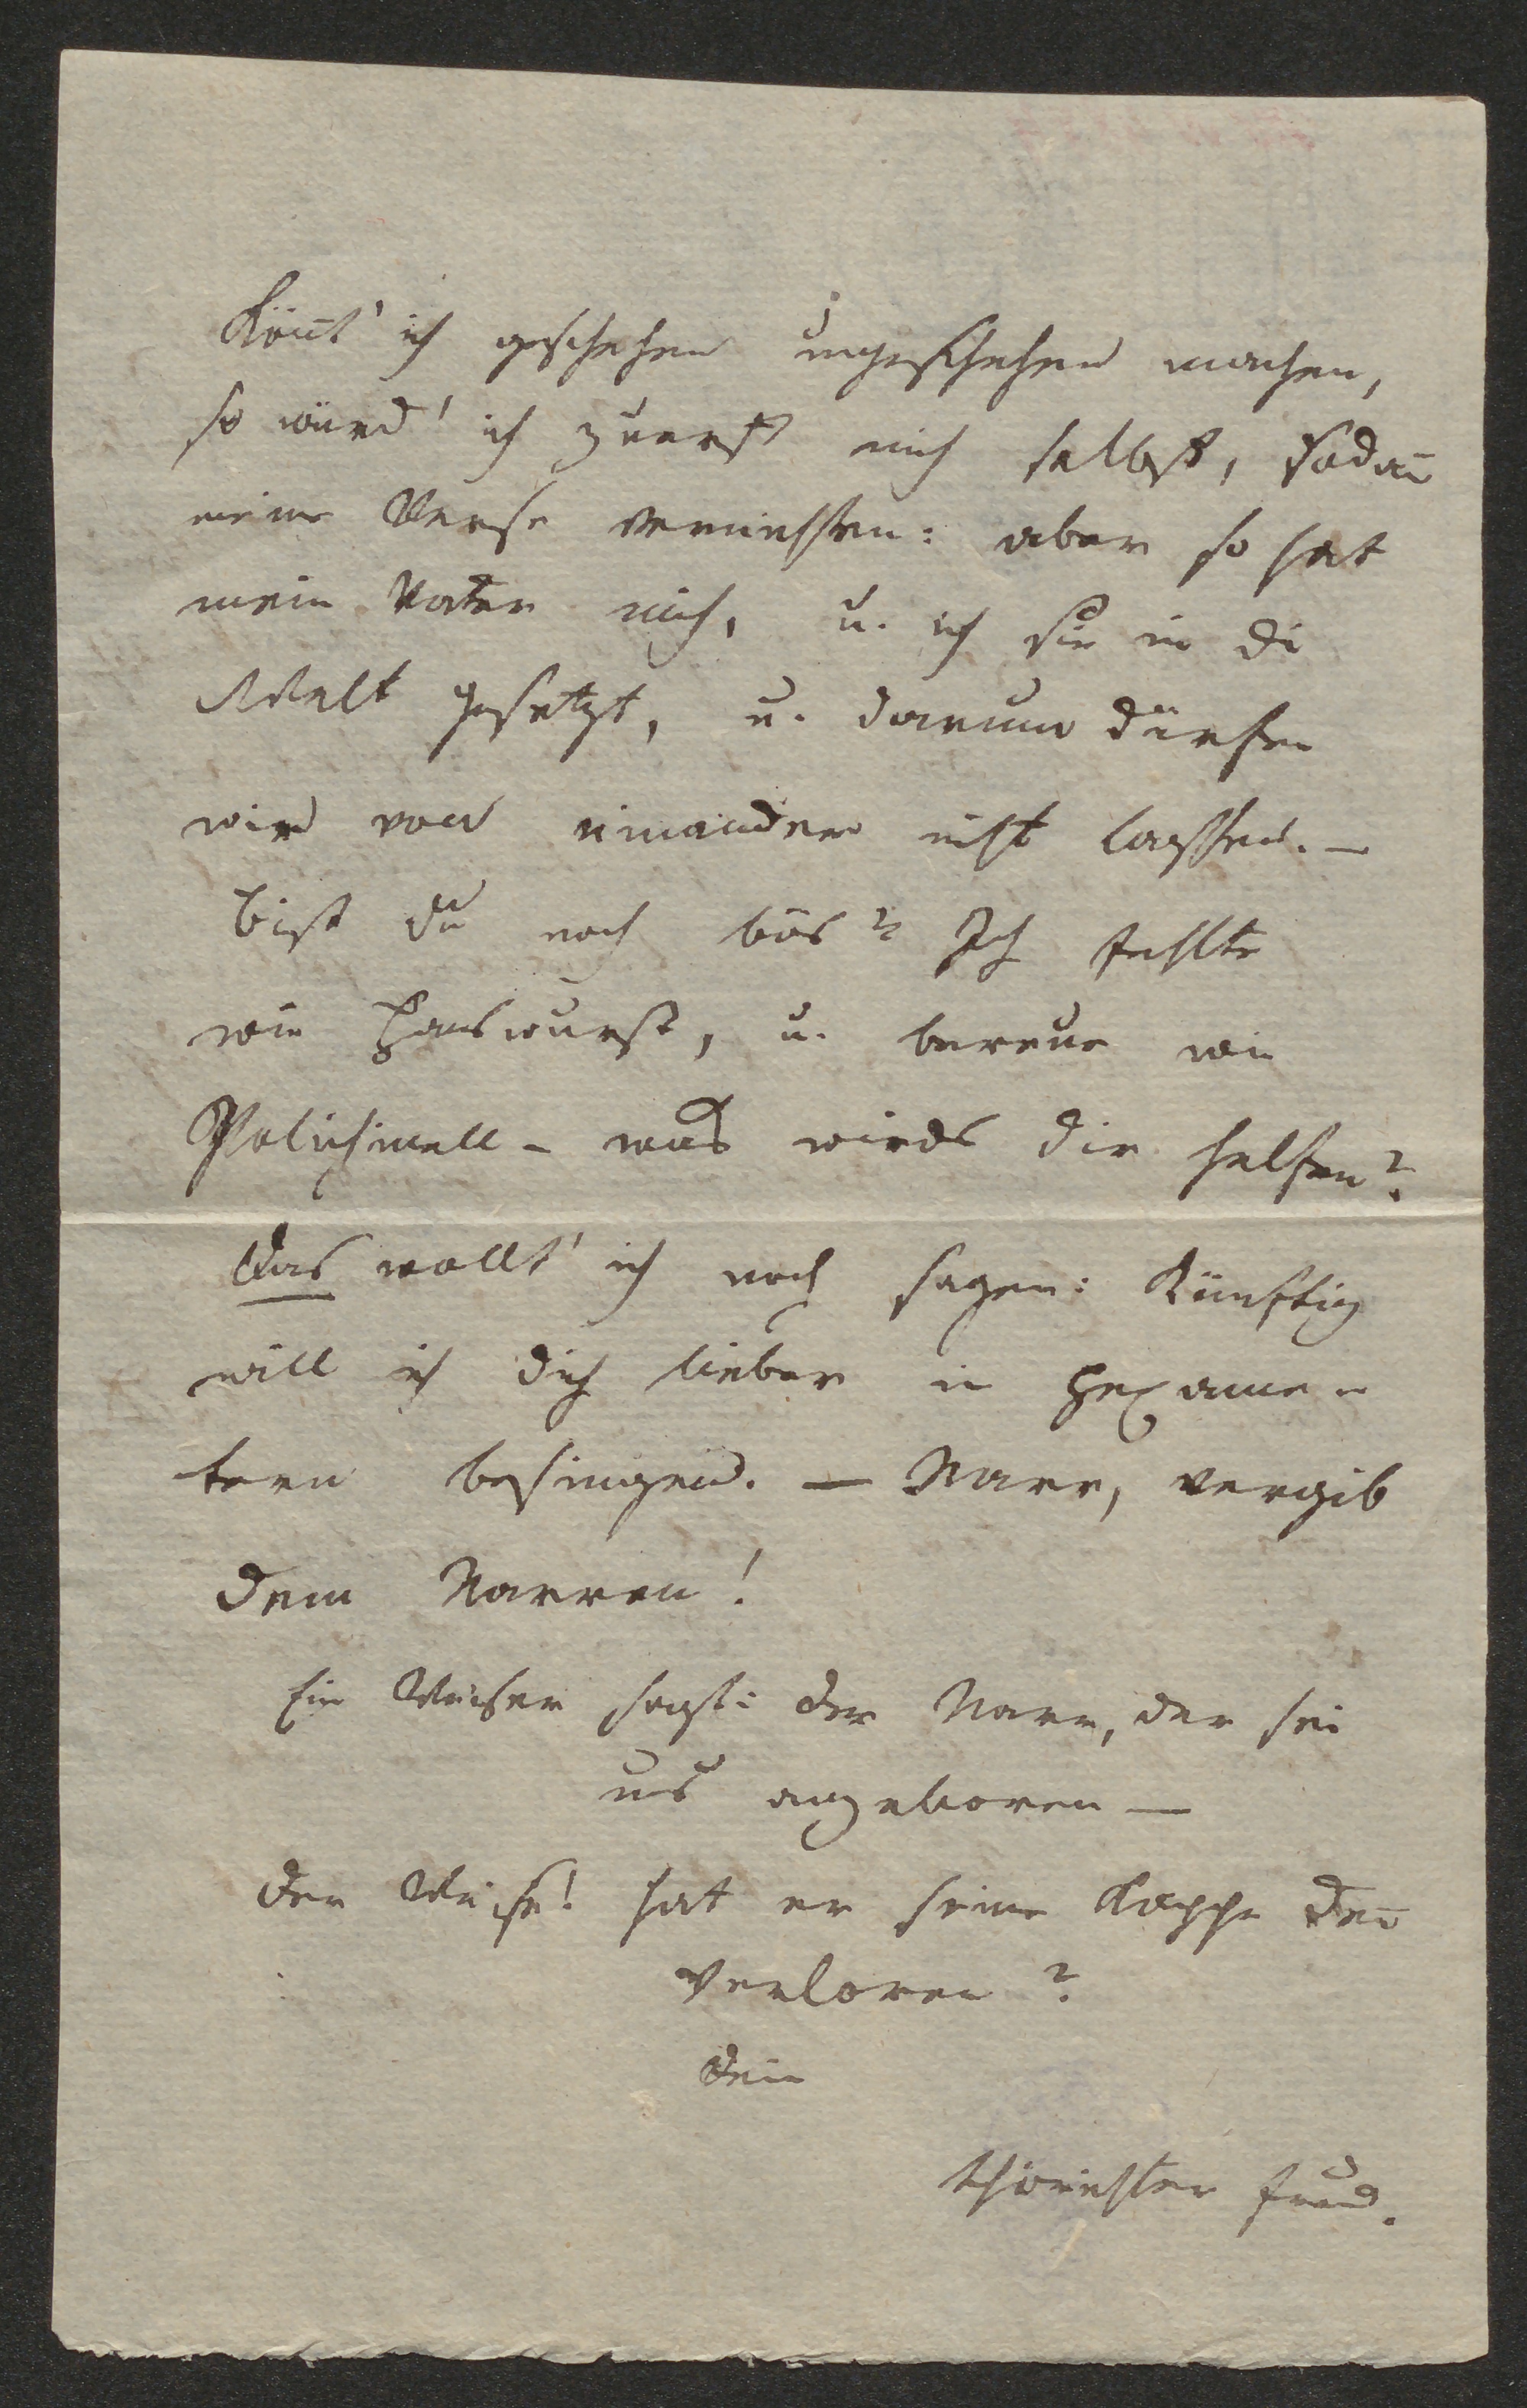 Könt' ich geschehen ungeschehen machen,
so würd' ich zuerst mich selbst, sodan̄
meine Verse vernichten: aber so hat
mein Vater mich, u. ich sie in di
Welt gesetzt, u. darum dürfen
wir von einander nicht lassen. —
bist du noch bös? Ich fehlte
wie Hanswurst, u. bereue wie
Polichinell - was wirds dir helfen?
Das wollt' ich noch sagen: Künftig
will ich dich lieber in Hexame-
tern besingen. — Narr, vergib
dem Narren!
Ein Weiser sagt: der Narr, der sei
uns angeboren —
Der Weise! hat er seine Kappe den̄
verloren?
Dein
thörichter Freund.